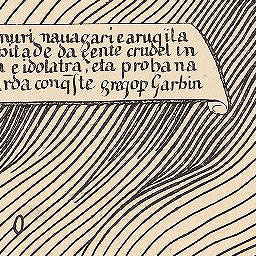 nuri, nauagari e arugita
pitade da gente crudel in
a e idolatra; eta probana
rda conq̃ste gregop Garbin
O